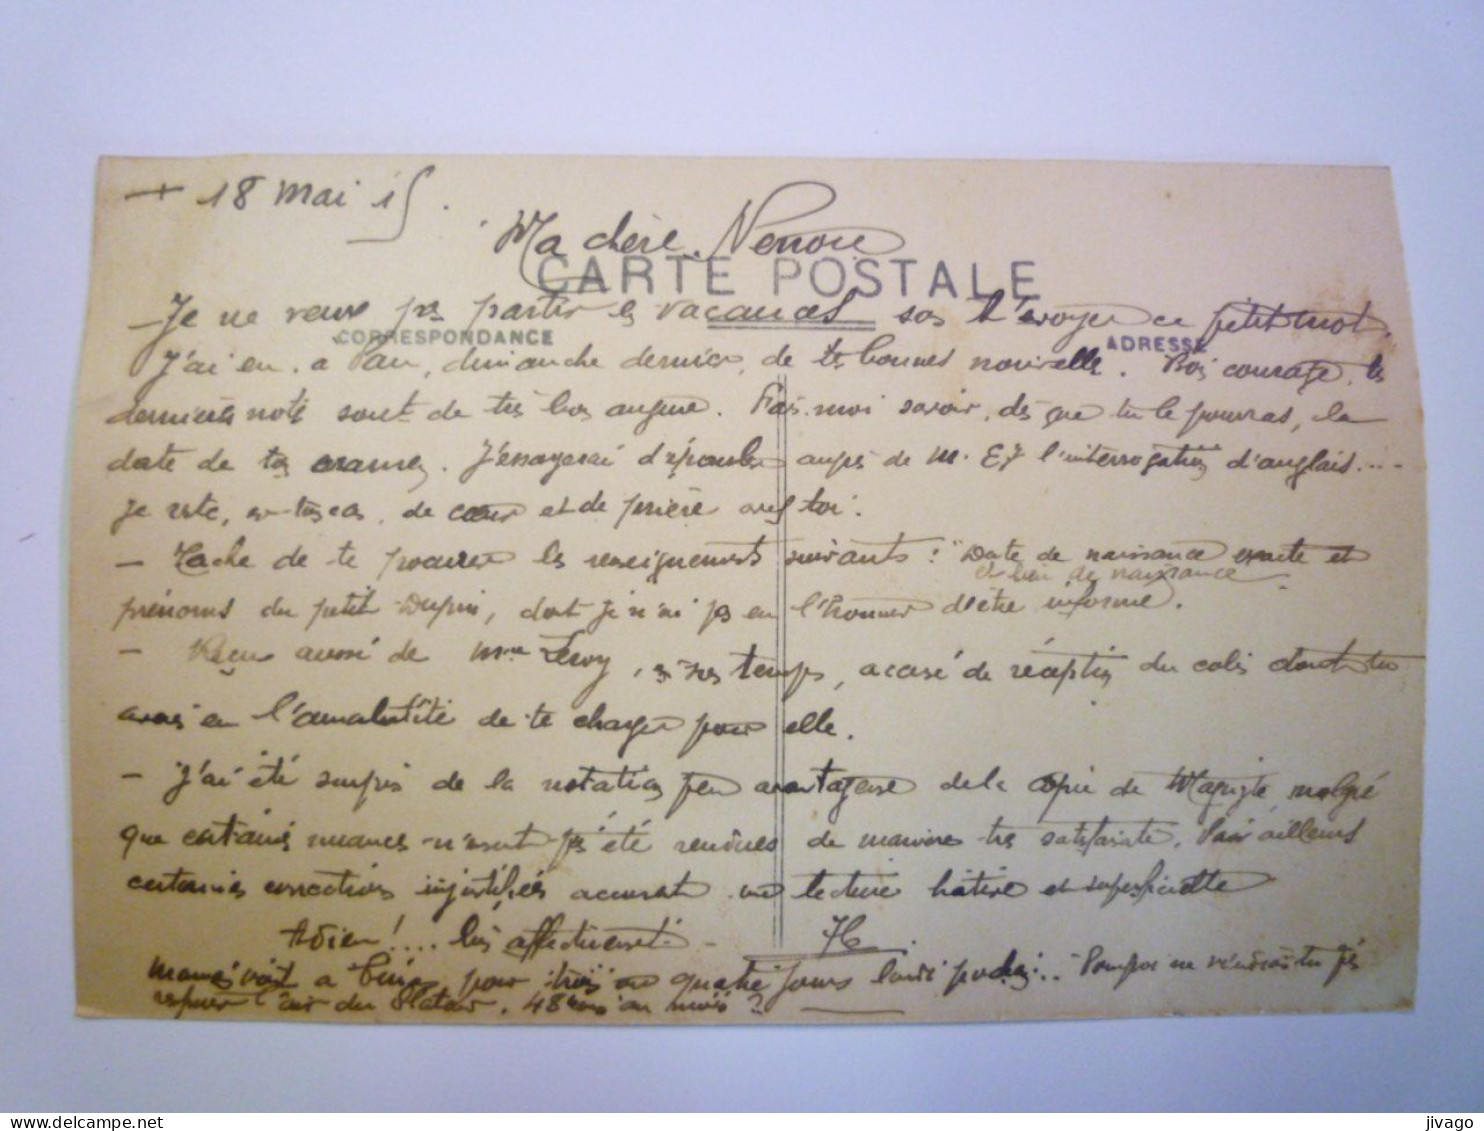 + 18 mai 15.
Ma chère Nenon
CARTE POSTALE
Je ne veux pas partir en vacances sans t'envoyer ce petit mot.
CORRESPONDANCE
ADRESSE
J'ai eu, à Pau, dimanche dernier, de tes bonnes nouvelles. Bon courage, les
dernières notes sont de très bon augure. Fais-moi savoir, dès que tu le pourras, la
date de ton examen. J'essayerai d' auprès de M. l'interrogation d'anglais....
Je reste, en tous cas, de cœur et de prière avec toi.
- Tâche de te procurer les renseignements suivants : "Date de naissance exacte et
et lieu de naissance
prénoms du petit Dupin, dont je n'ai pas eu l'honneur d'être informé.
- Reçu aussi de Mme Leroy, en son temps, accusé de réception du colis dont tu
avais eu l'amabilité de te charger pour elle.
- J'ai été surpris de la notation peu avantageuse de la copie de malgré
que certaines nuances n'aient pas été rendues de manière très satisfaisante. Par ailleurs
certaines corrections injustifiées accusent une lecture hâtive et superficielle
Adieu!... bien affectueuset -
H.
Maman voit à pour trois ou quatre jours lundi prochain... Pourquoi ne viendrais-tu pas
respirer l'air du Plateau, 48 heures au moins ?
jivago